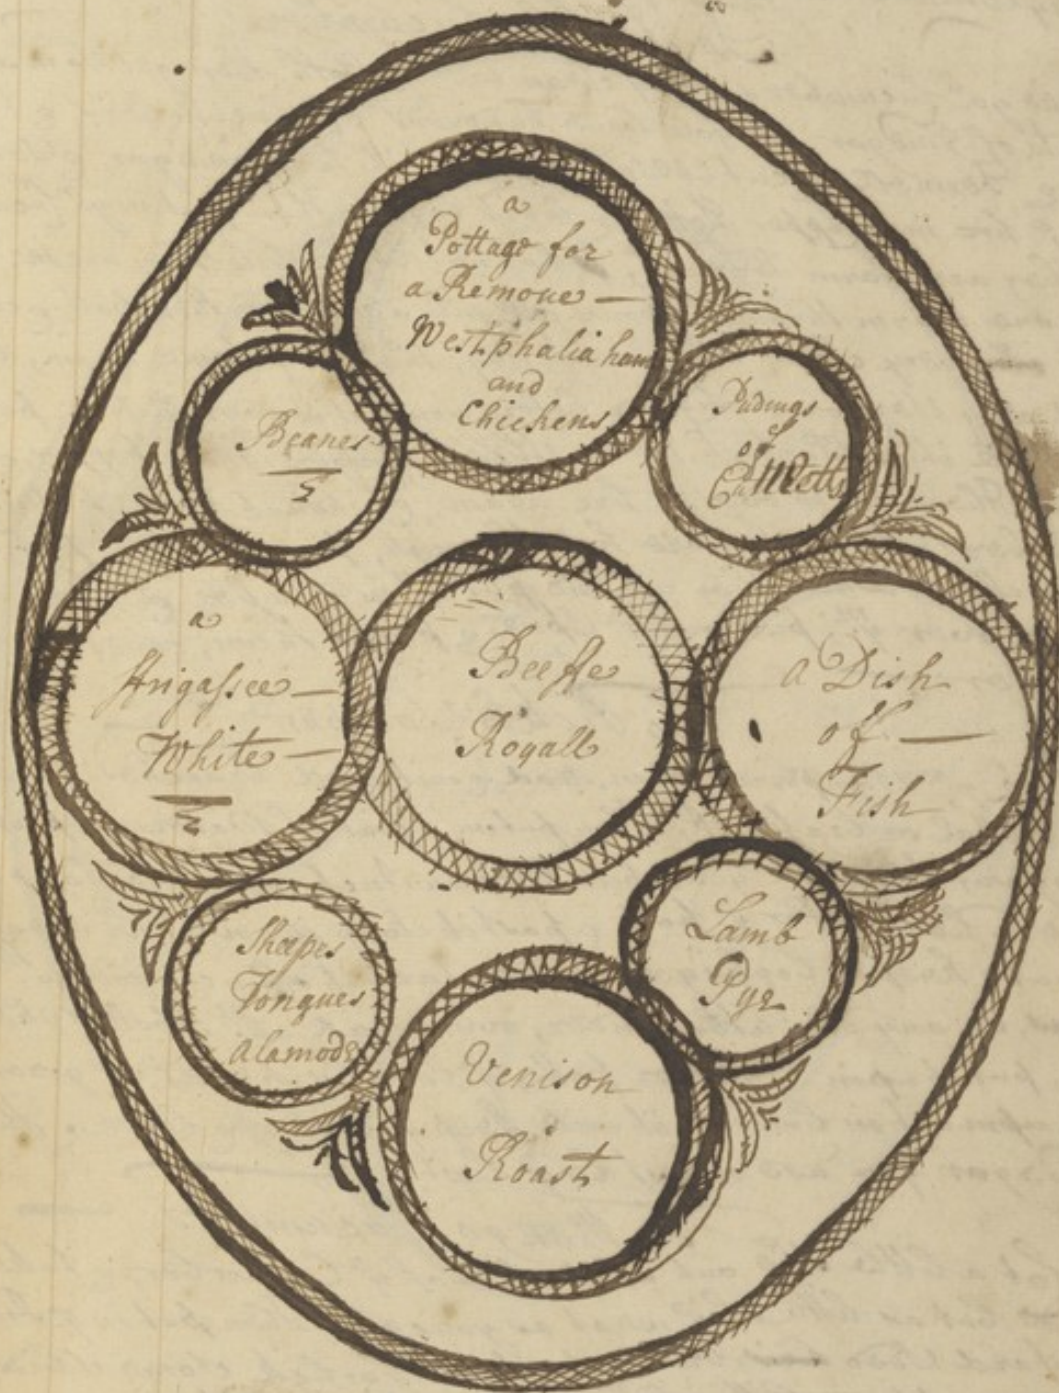 a
Pottage for
a Remoue —
Westphalia ham
and
Chickens
Beanes
Pudings
of
a
ffrigassee —
White —
Beeffe
Royall
a Dish
of —
Fish
Sheepes
Tongues
Alamode
Lamb
Pye
Venison
Roast